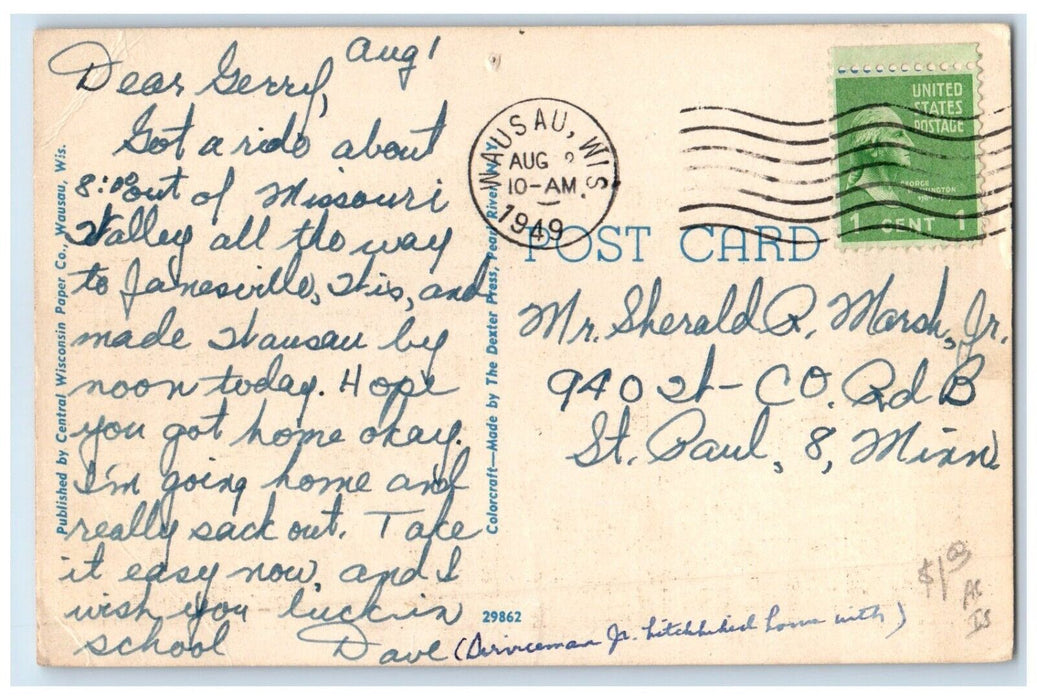 Aug 1
Dear Gerry,
Got a ride about
8:00 out of Missouri
Valley all the way
to Janesville, Wis, and
made Wausau by
noon today. Hope
you got home okay.
I'm going home and
really sack out. Take
it easy now, and I
wish you luck in
school Dave (Serviceman Jr. hitchhiked home with)
Published by Central Wisconsin Paper Co., Wausau, Wis.
Colorcraft—Made by The Dexter Press, Pearl River, NY
29862
WAUSAU, WIS.
AUG 2
10-AM
1949
UNITED
STATES
POSTAGE
GEORGE
WASHINGTON
1 CENT 1
POST CARD
Mr. Sherald R. Marsh, Jr.
940 W-CO. Rd B
St. Paul, 8, Minn
$1.03